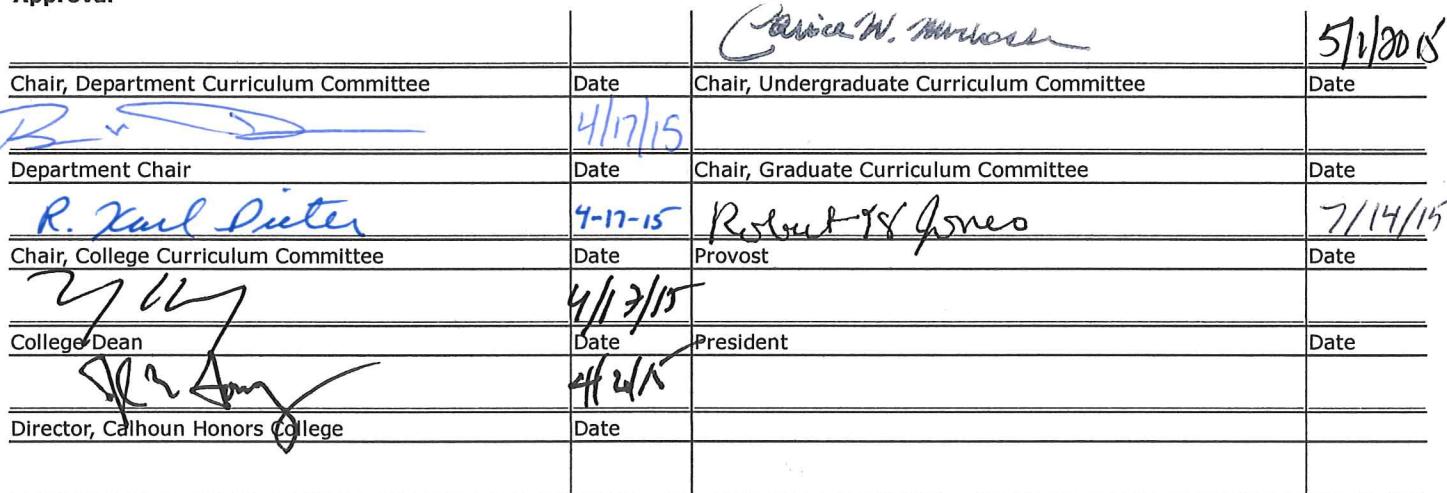 Approval
5/1/2015
Chair, Department Curriculum Committee Date Chair, Undergraduate Curriculum Committee Date
4/17/15
Department Chair Date Chair, Graduate Curriculum Committee Date
R. Karl Dieter 4-17-15 Robert H Jones 7/14/15
Chair, College Curriculum Committee Date Provost Date
4/17/15
College Dean Date President Date
Director, Calhoun Honors College Date